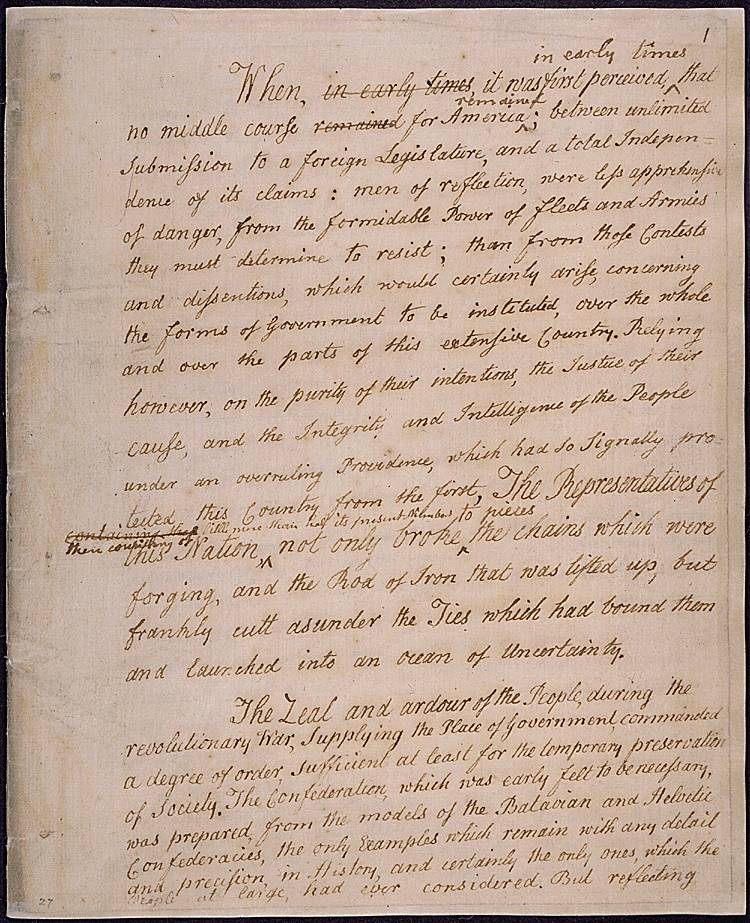 1
in early times
When, in early times, it was first perceived, ^ that
remained
no middle course remained for America ^; between unlimited
Submission to a foreign Legislature, and a total Indepen=
dence of its claims: men of reflection, were less apprehensive
of danger, from the formidable Power of fleets and Armies
they must determine to resist; than from those Contests
and dissentions, which would certainly arise, concerning
the forms of Government to be instituted, over the whole
and over the parts of this extensive Country. Relying
however, on the purity of their intentions, the Justice of their
cause, and the Integrity and Intelligence of the People
under an overruling Providence, which had so Signally pro=
tected this Country from the first, The Representatives of
containing half little more than half its present Numbers to pieces
then consisting of
this Nation ^, not only broke ^ the chains which were
forging, and the Rod of Iron that was lifted up, but
frankly cutt asunder the Ties which had bound them
and launched into an ocean of Uncertainty.
The Zeal and ardour of the People, during the
revolutionary War, Supplying the Place of Government, commanded
a degree of order, sufficient at least for the temporary preservation
of Society. The Confederation, which was early felt to be necessary,
was prepared, from the models of the Batavian and Helvetic
Confederacies, the only Examples which remain with any detail
and precision, in History, and certainly the only ones, which the
People at large, had ever considered. But reflecting
27